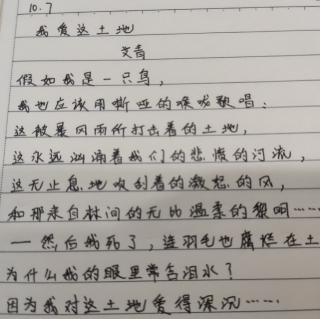 10.7
我爱这土地
艾青
假如我是一只鸟，
我也应该用嘶哑的喉咙歌唱：
这被暴风雨所打击着的土地，
这永远汹涌着我们的悲愤的河流，
这无止息地吹刮着的激怒的风，
和那来自林间的无比温柔的黎明……
—然后我死了，连羽毛也腐烂在土
为什么我的眼里常含泪水？
因为我对这土地爱得深沉……